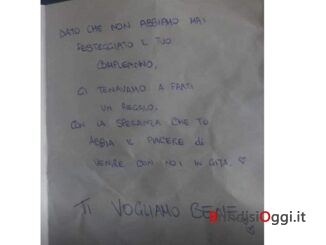 DATO CHE NON ABBIAMO MAI
FESTEGGIATO IL TUO
COMPLEANNO,
CI TENAVAMO A FARTI
UN REGALO,
CON LA SPERANZA CHE TU
ABBIA IL PIACERE di
VENIRE CON NOI IN GITA. ♡
TI VOGLIAMO BENE
BRindisiOggi.it